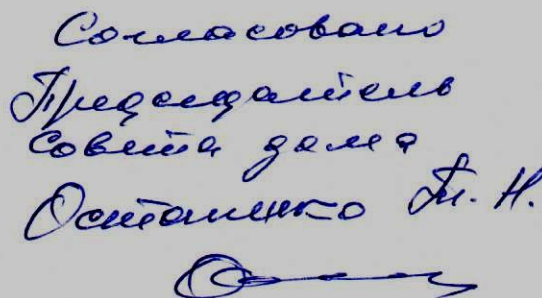 Согласовано
Председатель
Совета дома
Осташенко Т. Н.